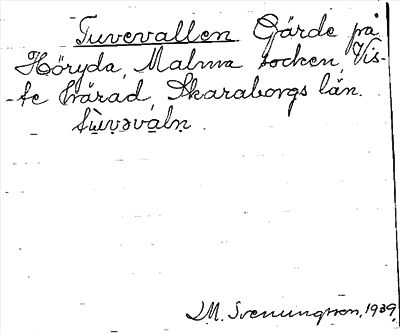 Tuvevallen Gärde på
Höryda, Malma socken, Vis-
-te härad, Skaraborgs län.
tùvəvàln.
M. Svenungsson, 1939.